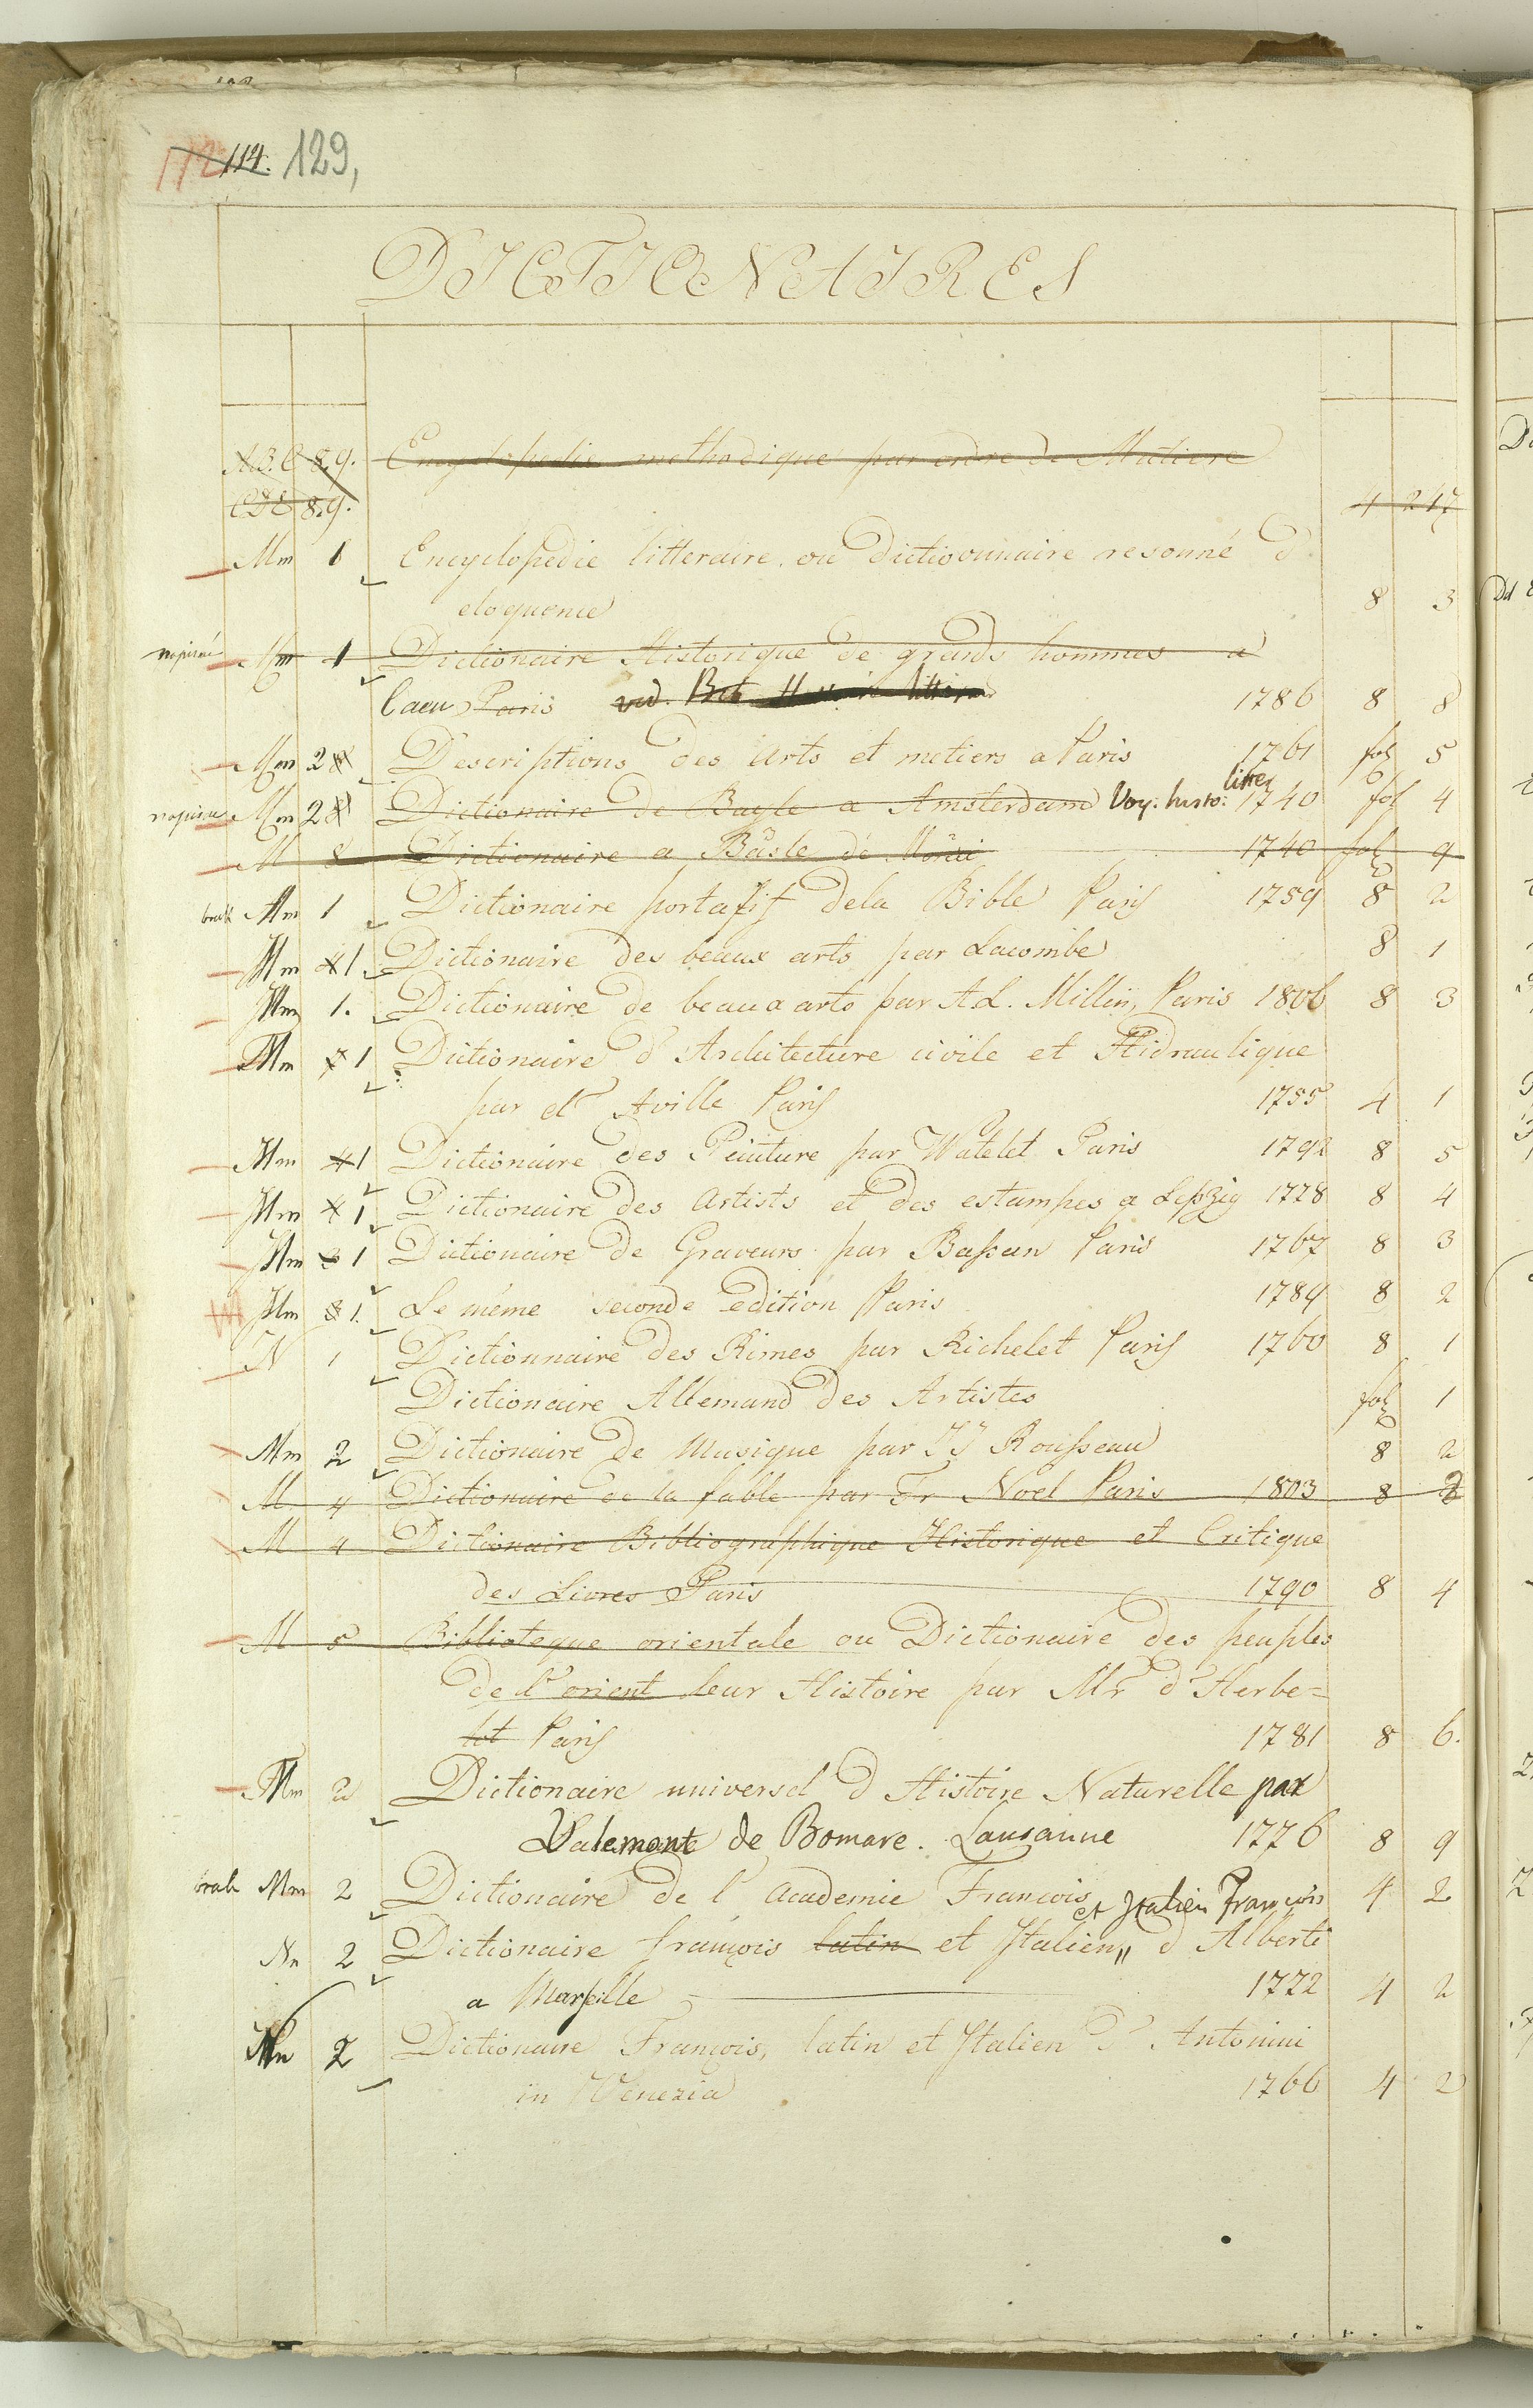 112 114. 129,
DICTIONAIRES
A.B.C 8.9. Encyclopedie methodique par ordre de Matiere
CDE 8.9. 4 247
Mm 1 Encyclopedie litteraire ou dictionnaire resonné d
eloquence 8 3
Mm 1 Dictionaire Historique de grands hommes a
Caen Paris vid. 1786 8 8
Mm 2 Descriptions des arts et metiers a Paris 1761 fol 5
litter
Mm 2 Dictionaire de Bayle a Amsterdam Voy: histo: 1740 fol 4
M 8 Dictionaire a Basle de Moréri 1740 fol 9
brak Mm 1 Dictionaire portatif dela Bible Paris 1759 8 2
Mm 4 1 Dictionaire des beaux arts par Lacombe 8 1
Mm 1. Dictionaire de beaux arts par A.L. Millin, Paris 1806 8 3
Mm 1 Dictionaire d'Architecture civile et Hidraulique
par d'Aville Paris 1755 4 1
Mm 4 1 Dictionaire des Peinture par Watelet Paris 1792 8 5
Mm 4 1 Dictionaire des Artists et des estampes a Lipzig 1778 8 4
Mm 1 Dictionaire de Graveurs par Bassan Paris 1767 8 3
Mm 8 1. Le même seconde edition Paris 1789 8 2
N 1 Dictionnaire des Rimes par Richelet Paris 1760 8 1
Dictionaire Allemand des Artistes fol 1
Mm 2 Dictionaire de Musique par JJ Rousseau 8 2
M 4 Dictionaire de la fable par Fr Noel Paris 1803 8 2
M 4 Dictionaire Bibliographique Historique et Critique
des Livres Paris 1790 8 4
M 5 Biblioteque orientale ou Dictionaire des peuples
de l'orient leur Histoire par Mr d'Herbe=
lot Paris 1781 8 6.
Mm 2 Dictionaire universel d Histoire Naturelle par
Valemont de Bomare. Lausanne 1776 8 9
brak Mm 2 Dictionaire de l'academie Francois 4 2
et Italien François
Nn 2 Dictionaire françois latin et Italien,, d Alberti
a Marseille 1772 4 2
Nn 2 Dictionaire François, latin et Italien d'Antonini
in Venezia 1766 4 2